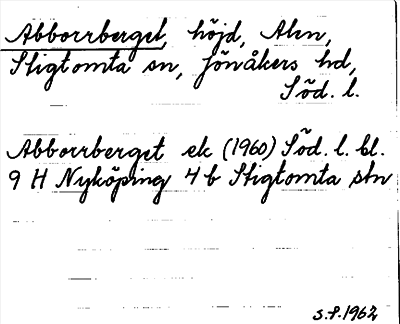 Abborrberget, höjd, Alen,
Stigtomta sn, Jönåkers hd,
Söd. l.
Abborrberget ek (1960) Söd. l. bl.
9 H Nyköping 4 b Stigtomta stn
S.P. 1962